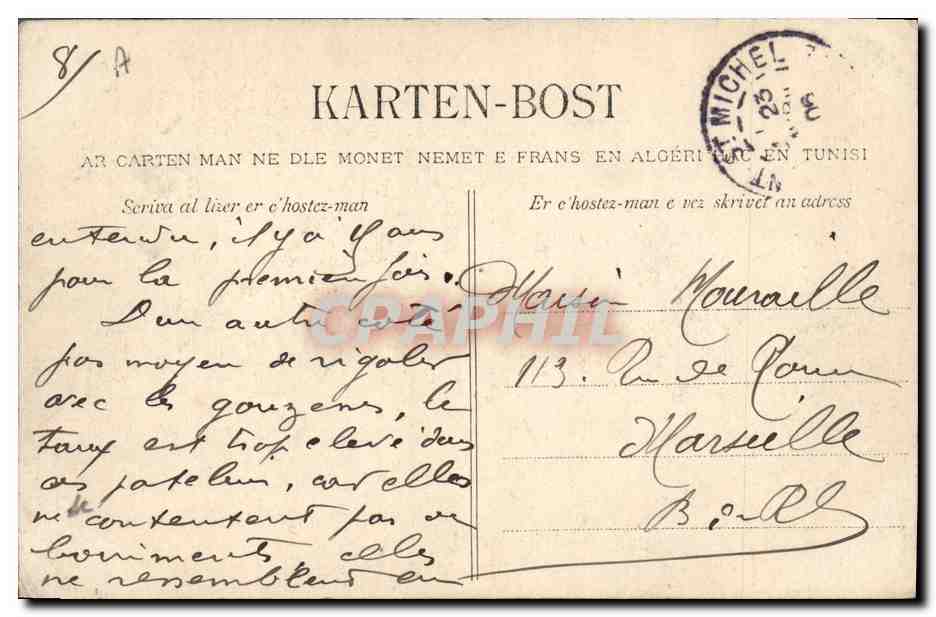 8/ A
KARTEN-BOST
AR CARTEN MAN NE DLE MONET NEMET E FRANS EN ALGERI HAC EN TUNISI
Scriva al lizer er c'hostez-man
Er c'hostez-man e vez skrivet an adress
MICHEL
23
entendu, il y a 4 ans
pour la première fois.
D'un autre coté
pas moyen de rigoler
avec les gouzesses, le
taux est trop elevé dans
ces patelins, car elles
ne se contentent pas de
boniments, elles
ne ressemblent en
Maison Mouraille
113. Rue de Rome
Marseille
B. du R.
CPAPHIL